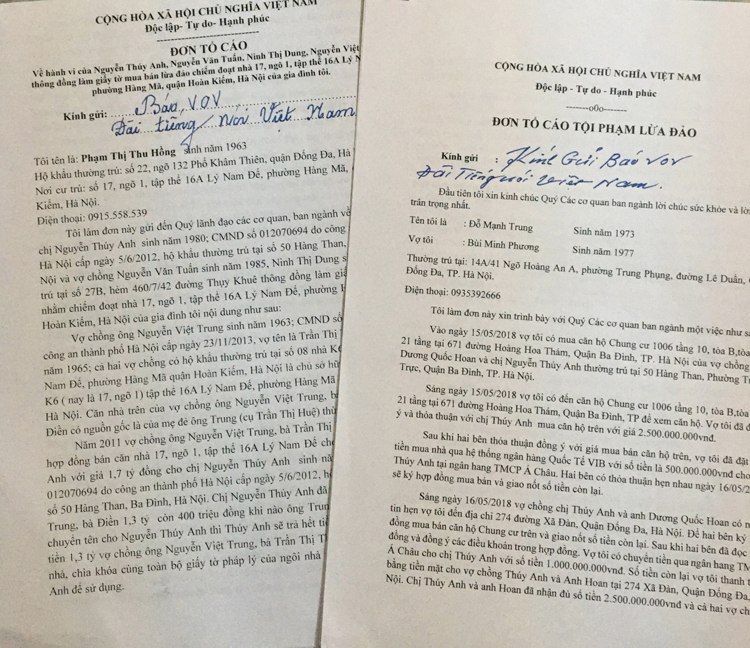 CỘNG HÒA XÃ HỘI CHỦ NGHĨA VIỆT NAM
Độc lập- Tự do- Hạnh phúc
ĐƠN TỐ CÁO
Về hành vi của Nguyễn Thúy Anh, Nguyễn Văn Tuấn, Ninh Thị Dung, Nguyễn Việt
thông đồng làm giấy tờ mua bán lừa đảo chiếm đoạt nhà 17, ngõ 1, tập thể 16A Lý Nam
phường Hàng Mã, quận Hoàn Kiếm, Hà Nội của gia đình tôi.
Kính gửi: Báo VOV
Đài tiếng Nói Việt Nam
Tôi tên là: Phạm Thị Thu Hồng sinh năm 1963
Hộ khẩu thường trú: số 22, ngõ 132 Phố Khâm Thiên, quận Đống Đa, Hà
Nơi cư trú: số 17, ngõ 1, tập thể 16A Lý Nam Đế, phường Hàng Mã,
Kiếm, Hà Nội.
Điện thoại: 0915.558.539
Tôi làm đơn này gửi đến Quý lãnh đạo các cơ quan, ban ngành về
chị Nguyễn Thúy Anh sinh năm 1980; CMND số 012070694 do công
Hà Nội cấp ngày 5/6/2012, hộ khẩu thường trú tại số 50 Hàng Than,
Nội và vợ chồng Nguyễn Văn Tuấn sinh năm 1985, Ninh Thị Dung
trú tại số 27B, hẻm 460/7/42 đường Thụy Khuê thông đồng làm
nhằm chiếm đoạt nhà 17, ngõ 1, tập thể 16A Lý Nam Đế, phường
Hoàn Kiếm, Hà Nội của gia đình tôi nội dung như sau:
Vợ chồng ông Nguyễn Việt Trung sinh năm 1963; CMND số
công an thành phố Hà Nội cấp ngày 23/11/2013, vợ tên là Trần Thị
năm 1965; cả hai vợ chồng có hộ khẩu thường trú tại số 08 nhà
Nam Đế, phường Hàng Mã quận Hoàn Kiếm, Hà Nội là chủ sở
K6 ( nay là 17, ngõ 1) tập thể 16A Lý Nam Đế, phường Hàng Mã
Hà Nội. Căn nhà trên của vợ chồng ông Nguyễn Việt Trung,
Điền có nguồn gốc là của mẹ đẻ ông Trung (cụ Trần Thị Huệ)
Năm 2011 vợ chồng ông Nguyễn Việt Trung, bà Trần Thị
hợp đồng bán căn nhà 17, ngõ 1, tập thể 16A Lý Nam Đế
Anh với giá 1,7 tỷ đồng cho chị Nguyễn Thúy Anh sinh
012070694 do công an thành phố Hà Nội cấp ngày 5/6/2012,
số 50 Hàng Than, Ba Đình, Hà Nội. Chị Nguyễn Thúy Anh đã
Trung, bà Điền 1,3 tỷ còn 400 triệu đồng khi nào ông
chuyển tên cho Nguyễn Thúy Anh thì Thúy Anh sẽ trả hết
tiền 1,3 tỷ vợ chồng ông Nguyễn Việt Trung, bà Trần Thị
nhà, chìa khóa cùng toàn bộ giấy tờ pháp lý của ngôi nhà
Anh để sử dụng.
CỘNG HÒA XÃ HỘI CHỦ NGHĨA VIỆT NAM
Độc lập - Tự do - Hạnh phúc
-------o0o--------
ĐƠN TỐ CÁO TỘI PHẠM LỪA ĐẢO
Kính gửi : Kính Gửi Báo VOV
Đài Tiếng nói Việt Nam.
Đầu tiên tôi xin kính chúc Quý Các cơ quan ban ngành lời chúc sức khỏe và
trân trọng nhất.
Tên tôi là : Đỗ Mạnh Trung Sinh năm 1973
Vợ tôi : Bùi Minh Phương Sinh năm 1977
Thường trú tại: 14A/41 Ngõ Hoàng An A, phường Trung Phụng, đường Lê Duẩn,
Đống Đa, TP. Hà Nội.
Điện thoại: 0935392666
Tôi làm đơn này xin trình bày với Quý Các cơ quan ban ngành một việc như
Vào ngày 15/05/2018 vợ tôi có mua căn hộ Chung cư 1006 tầng 10, tòa B,tòa
21 tầng tại 671 đường Hoàng Hoa Thám, Quận Ba Đình, TP. Hà Nội của vợ chồng
Dương Quốc Hoan và chị Nguyễn Thúy Anh thường trú tại 50 Hàng Than, Phường
Trực, Quận Ba Đình, TP. Hà Nội.
Sáng ngày 15/05/2018 vợ tôi có đến căn hộ Chung cư 1006 tầng 10, tòa B,tòa
21 tầng tại 671 đường Hoàng Hoa Thám, Quận Ba Đình, TP để xem căn hộ. Vợ tôi đã
ý và thỏa thuận với chị Thúy Anh mua căn hộ trên với giá 2.500.000.000vnđ.
Sau khi hai bên thỏa thuận đồng ý với giá mua bán căn hộ trên, vợ tôi đã đặt
tiền mua nhà qua hệ thống ngân hàng Quốc Tế VIB với số tiền là 500.000.000vnđ
Thúy Anh tại ngân hàng TMCP Á Châu. Hai bên có thỏa thuận hẹn nhau ngày 16/05/
sẽ ký hợp đồng mua bán và giao nốt số tiền còn lại.
Sáng ngày 16/05/2018 vợ chồng chị Thúy Anh và anh Dương Quốc Hoan có
tin hẹn vợ tôi đến địa chỉ 274 đường Xã Đàn, Quận Đống Đa, Hà Nội. Để hai bên ký
đồng mua bán căn hộ Chung cư trên và giao nốt số tiền còn lại. Sau khi hai bên đã đọc
đồng và đồng ý các điều khoản trong hợp đồng. Vợ tôi có chuyển tiền qua ngân hàng
Á Châu cho chị Thúy Anh với số tiền 1.000.000.000vnđ. Số tiền còn lại vợ tôi thanh
bằng tiền mặt cho vợ chồng Thúy Anh và Anh Hoan tại 274 Xã Đàn, Quận Đống Đa,
Nội. Chị Thúy Anh và anh Hoan đã nhận đủ số tiền 2.500.000.000vnđ và cả hai vợ